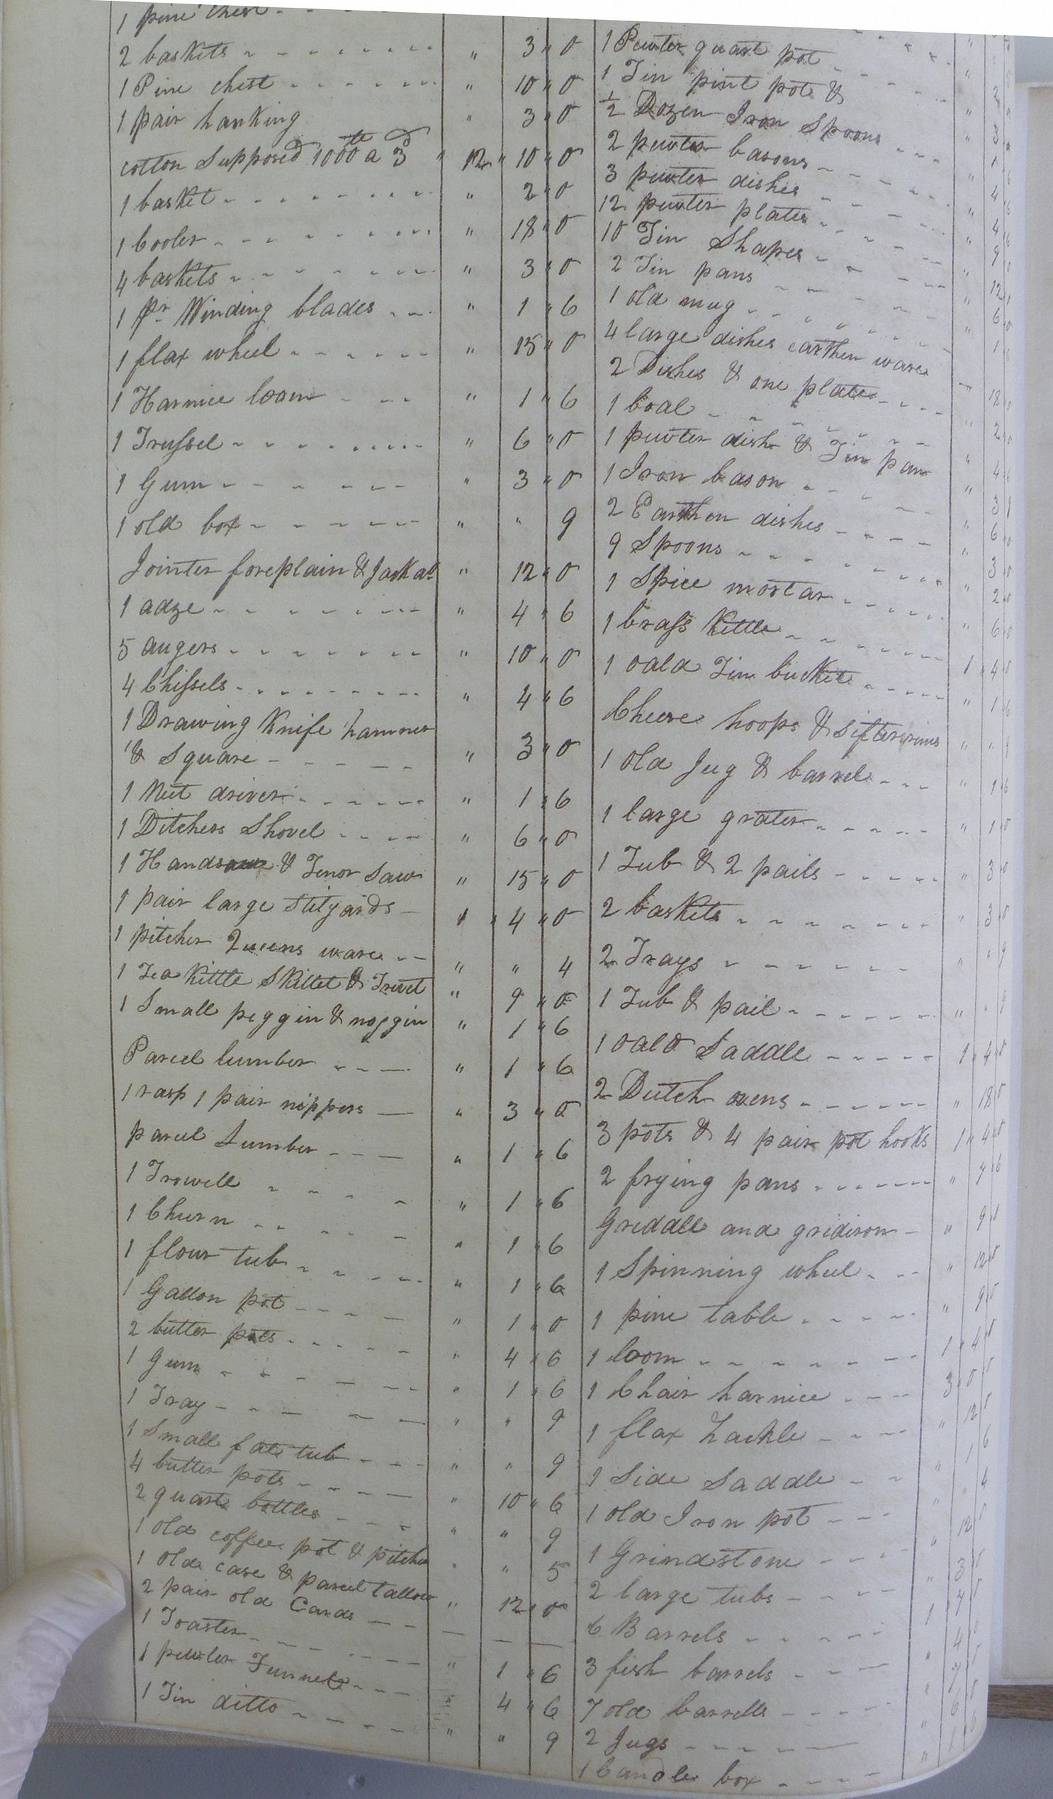 1 pine chest
2 baskets " 3 " 0
1 Pine chest " 10 " 0
1 pair hanking " 3 " 0
cotton Supposed 1000 lb a 3d " 12 " 10 " 0
1 basket " 2 " 0
1 Cooler " 18 " 0
4 baskets " 3 " 0
1 pr Winding blades " 1 " 6
1 flax wheel " 15 " 0
1 Harnice loom " 1 " 6
1 Trussel " 6 " 0
1 Gum " 3 " 0
1 old box " " 9
Jointer foreplain & Jack at " 12 " 0
1 adze " 4 " 6
5 augers " 10 " 0
4 Chissels " 4 " 6
1 Drawing Knife hammer
& Square " 3 " 0
1 Nut driver " 1 " 6
1 Ditchers Shovel " 6 " 0
1 Handsaw & Tenor Saw " 15 " 0
1 pair large Stilyards 1 " 4 " 0
1 pitcher Queens ware " " 4
1 Tea Kittle Skillet & Trivet " 9 " 0
1 Small peggin & noggin " 1 " 6
Parcel lumber " 1 " 6
1 rasp 1 pair nippers " 3 " 0
parcel Lumber " 1 " 6
1 Trowell " 1 " 6
1 Churn " 1 " 6
1 flour tub " 1 " 6
1 Gallon pot " 1 " 0
2 butter pots " 4 " 6
1 Gum " 1 " 6
1 Tray " " 9
1 Small fat tub " " 9
4 butter pots " 10 " 6
2 quart bottles " " 9
1 old coffee pot & pitcher " " 5
1 old case & parcel tallow " 12 " 0
2 pair old Cards
1 Toaster " 1 " 6
1 pewter Funnel " 4 " 6
1 Tin ditto " " 9
1 Pewter quart pot
1 Tin pint pot &
1/2 Dozen Iron Spoons
2 pewter basons
3 pewter dishes
12 pewter plates
10 Tin Shapes
2 Tin pans
1 old mug
4 large dishes earthen ware
2 Dishes & one plate
1 boal
1 pewter dish & Tin pan
1 Iron bason
2 Earthen dishes
9 Spoons
1 Spice mortar
1 brass Kettle
1 oald Tin bucket
Cheese hoops & sifter
1 Old Jug & barrel
1 large grater
1 Tub & 2 pails
2 baskets
2 Trays
1 Tub & pail
1 oald Saddle
2 Dutch ovens
3 pots & 4 pair pot hooks
2 frying pans
Griddle and gridiron
1 Spinning wheel
1 pine table
1 loom
1 Chair harnice
1 flax hackle
1 Side Saddle
1 old Iron pot
1 Grindstone
2 large tubs
6 Barrels
3 fish barrels
7 old barrells
2 Jugs
1 Candle box